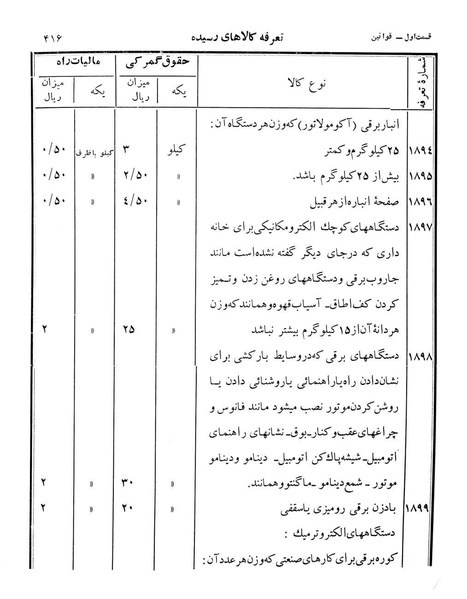 قسمت اول ــ قوانین
تعرفه کالاهای رسیده
۴۱۶
شمارهٔ تعرفه
نوع کالا
حقوق گمرکی
مالیات راه
یکه
میزان ریال
یکه
میزان ریال
انبار برقی (آکومولاتور) که وزن هر دستگاه آن:
۱۸۹٤ ۲۵ کیلوگرم و کمتر کیلو ۳ کیلو باظرف ۰/۵۰
۱۸۹۵ بیش از ۲۵ کیلوگرم باشد. » ۲/۵۰ » ۰/۵۰
۱۸۹۶ صفحهٔ انباره از هر قبیل » ٤/۵۰ » ۰/۵۰
۱۸۹۷ دستگاههای کوچك الکترومکانیکی برای خانه
داری که درجای دیگر گفته نشده است مانند
جاروب برقی ودستگاههای روغن زدن وتمیز
کردن کف اطاق ـ آسیاب قهوه و همانند که وزن
هر دانهٔ آن از ۱۵ کیلوگرم بیشتر نباشد » ۲۵ » ۲
۱۸۹۸ دستگاههای برقی که در وسایط بارکشی برای
نشان دادن راه یا راهنمائی یا روشنائی دادن یا
روشن کردن موتور نصب میشود مانند فانوس و
چراغهای عقب و کنار ـ بوق ـ نشانهای راهنمای
اتومبیل ـ شیشه پاك کن اتومبیل ـ دینامو و دینامو
موتور ـ شمع دینامو ـ ماگنتو و همانند. » ۳۰ » ۲
۱۸۹۹ بادزن برقی رومیزی یا سقفی » ۲۰ » ۲
دستگاههای الکتروترمیك :
کوره برقی برای کارهای صنعتی که وزن هر عدد آن: